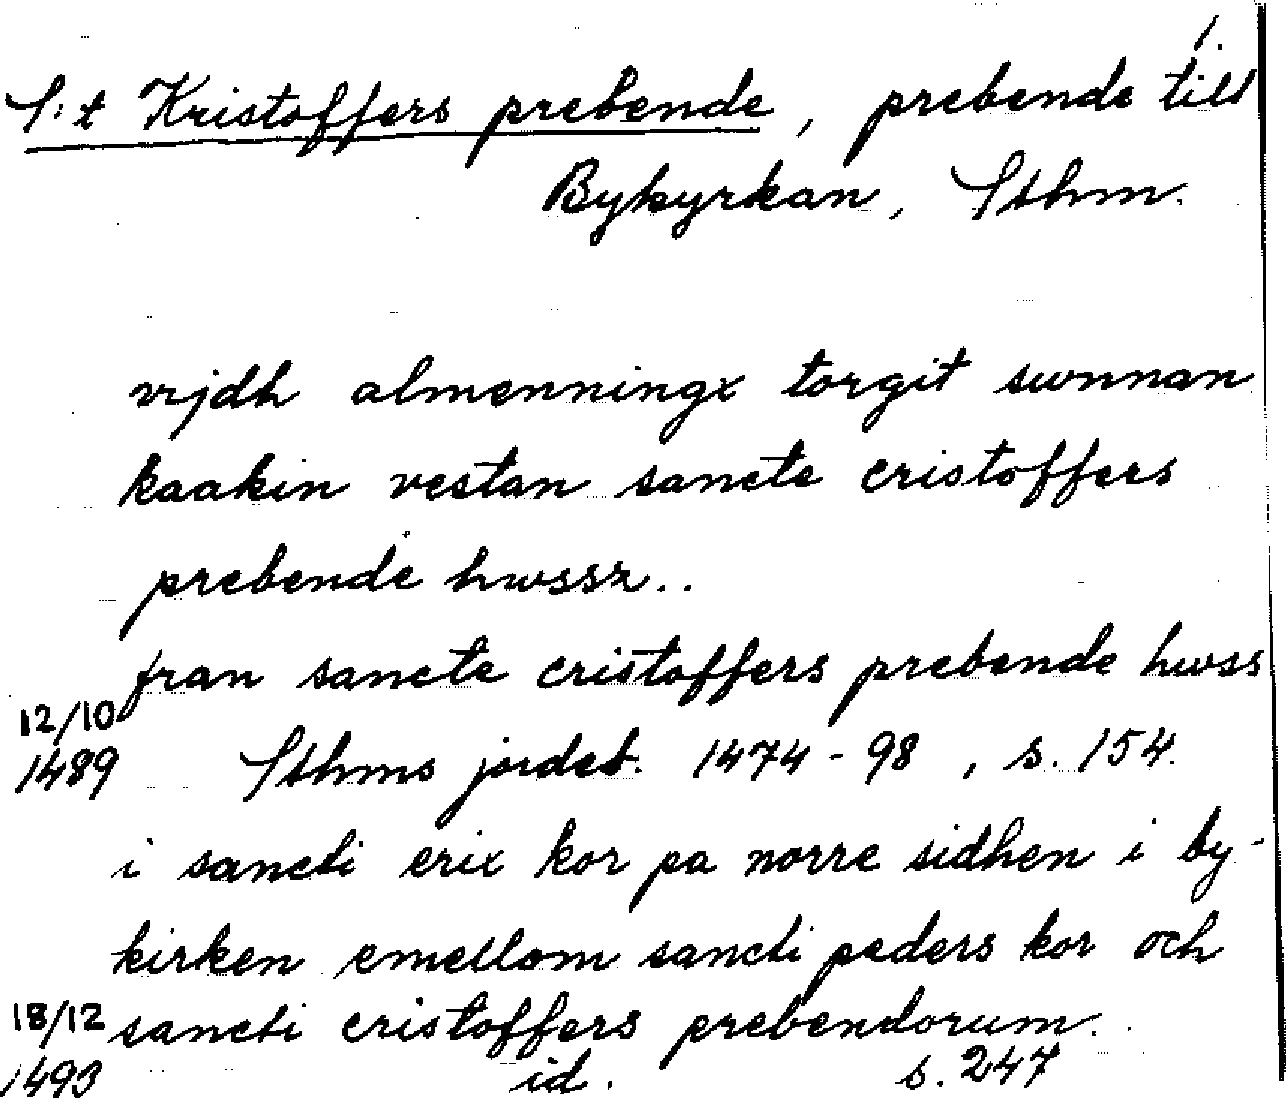 1.
S:t Kristoffers prebende, prebende till
Bykyrkan, Sthm.
vijdh almenningx torgit swnnan
kaakin vestan sancte cristoffers
prebende hwssz..
fran sancte cristoffers prebende hwss
12/10
1489 Sthms jordeb. 1474-98, s. 154.
i sancti erix kor pa norre sidhen i by-
kirken emellom sancti peders kor och
18/12 sancti cristoffers prebendorum..
1493 id. s. 247